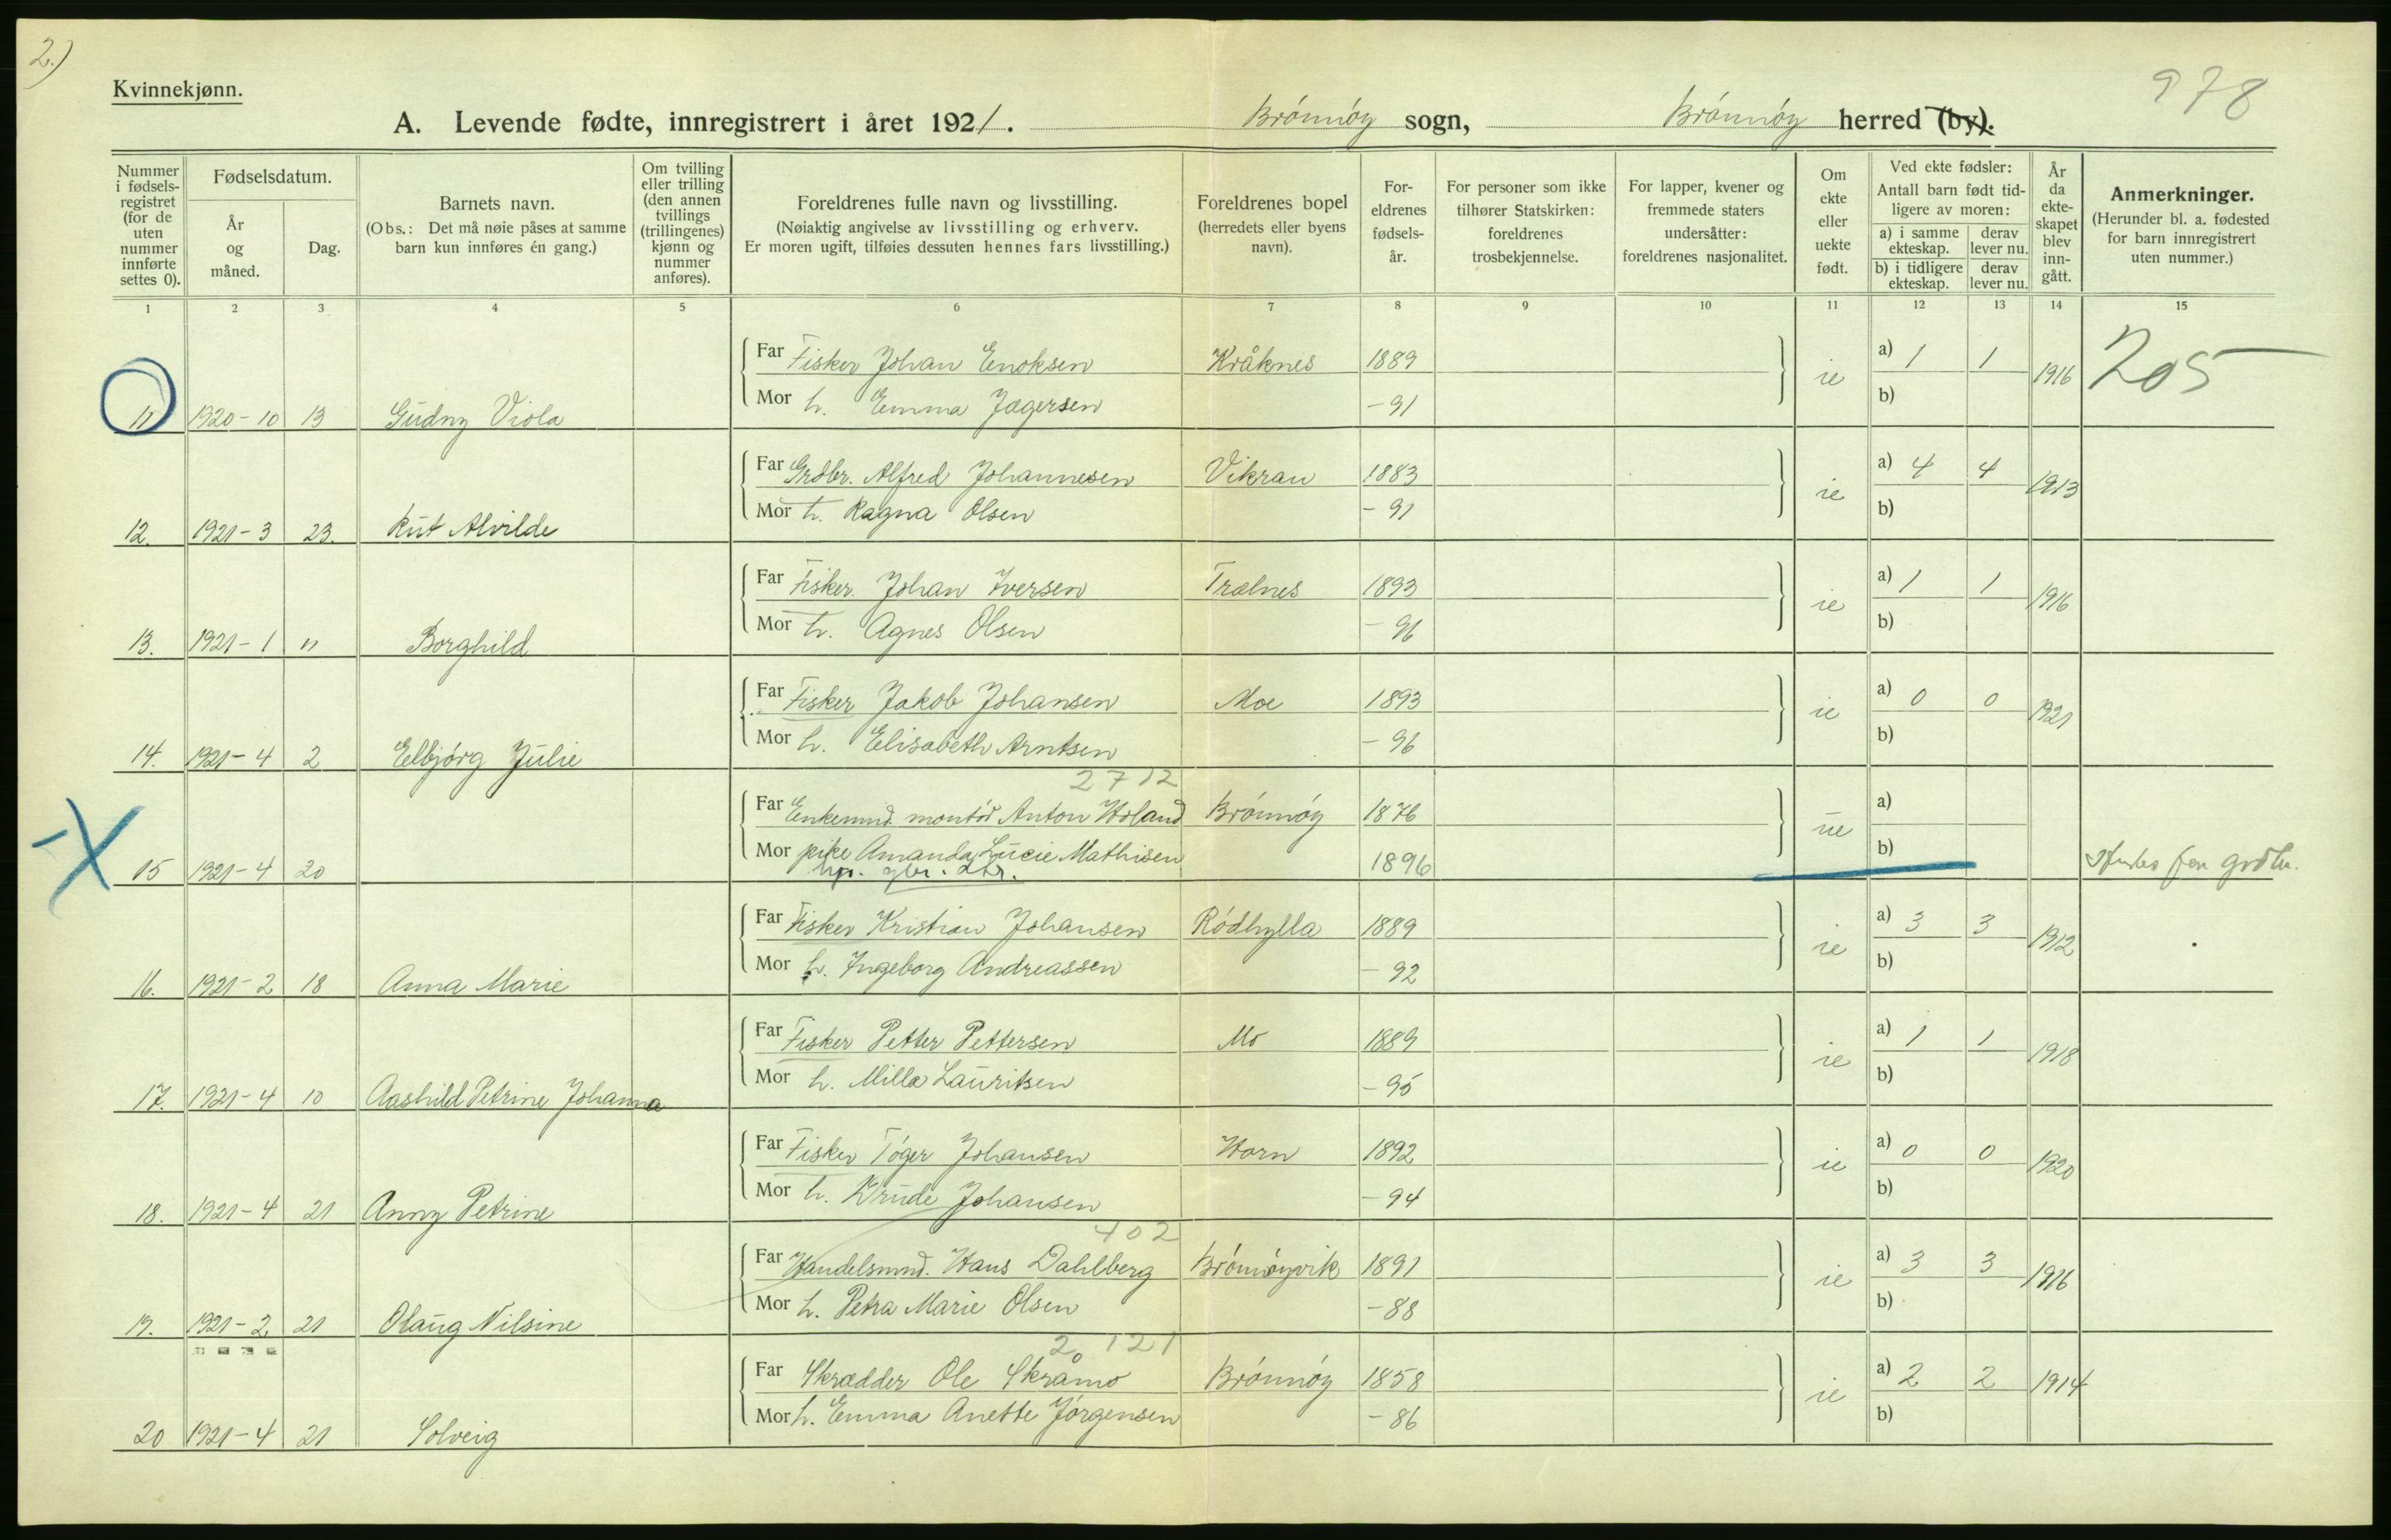 2.)
Kvinnekjønn.
978
A. Levende fødte, innregistrert i året 1921. Brónnóy sogn, Brónnóy herred (by).
Nummer i fødsels-registret (for de uten nummer innførte settes 0).
Fødselsdatum.
År og måned.
Dag.
Barnets navn.
(Obs.: Det må nøie påses at samme barn kun innføres én gang.)
Om tvilling eller trilling (den annen tvillings (trillingenes) kjønn og nummer anføres).
Foreldrenes fulle navn og livsstilling.
(Nøiaktig angivelse av livsstilling og erhverv.
Er moren ugift, tilføies dessuten hennes fars livsstilling.)
Foreldrenes bopel
(herredets eller byens navn).
For-eldrenes fødsels-år.
For personer som ikke tilhører Statskirken: foreldrenes trosbekjennelse.
For lapper, kvener og fremmede staters undersåtter: foreldrenes nasjonalitet.
Om ekte eller uekte født.
Ved ekte fødsler:
Antall barn født tid-ligere av moren:
a) i samme ekteskap.
derav lever nu.
b) i tidligere ekteskap.
derav lever nu.
År da ekte-skapet blev inn-gått.
Anmerkninger.
(Herunder bl. a. fødested for barn innregistrert uten nummer.)
1 2 3 4 5 6 7 8 9 10 11 12 13 14 15
Far Fisker Johan Enoksen Kråknes 1889 ie a) 1 1 1916 205
Mor h. Emma Jægersen - 91 b)
11 1920-10 13 Gudny Viola
Far Grdbr. Alfred Johannesen Vikran 1883 ie a) 4 4 1913
Mor h. Ragna Olsen - 91 b)
12. 1921-3 23. Rut Alvilde
Far Fisker Johan Iversen Trælnes 1893 ie a) 1 1 1916
Mor h. Agnes Olsen - 96 b)
13. 1921-1 11 Borghild
Far Fisker Jakob Johansen Moe 1893 ie a) 0 0 1921
Mor h. Elisabeth Arntsen - 96 b)
14. 1921-4 2 Elbjórg Julie
2712
Far Enkemnd. montór Anton Holand Brónnóy 1876 ue a)
Mor pike Amanda Lucie Mathisen 1896 b)
15 1921-4 20
gbr. dtr.
Far Fisker Kristian Johansen Ródhylla 1889 ie a) 3 3 1912
Mor h. Ingeborg Andreassen - 92 b)
16. 1921-2 18 Anna Marie
Far Fisker Petter Pettersen Mo 1889 ie a) 1 1 1918
Mor h. Milla Lauritsen - 95 b)
17. 1921-4 10 Aashild Petrine Johanna
Far Fisker Tóger Johansen Horn 1892 ie a) 0 0 1920
Mor h. Drude Johansen - 94 b)
18. 1921-4 21 Anny Petrine
402
Far Handelsmnd. Hans Dahlberg Brónnóyvik 1891 ie a) 3 3 1916
Mor h. Petra Marie Olsen - 88 b)
19. 1921-2 21 Olaug Nilsine
2 121
Far Skrædder Ole Skråmo Brónnóy 1858 ie a) 2 2 1914
Mor h. Emma Anette Jórgensen - 86 b)
20 1921-4 21 Solveig